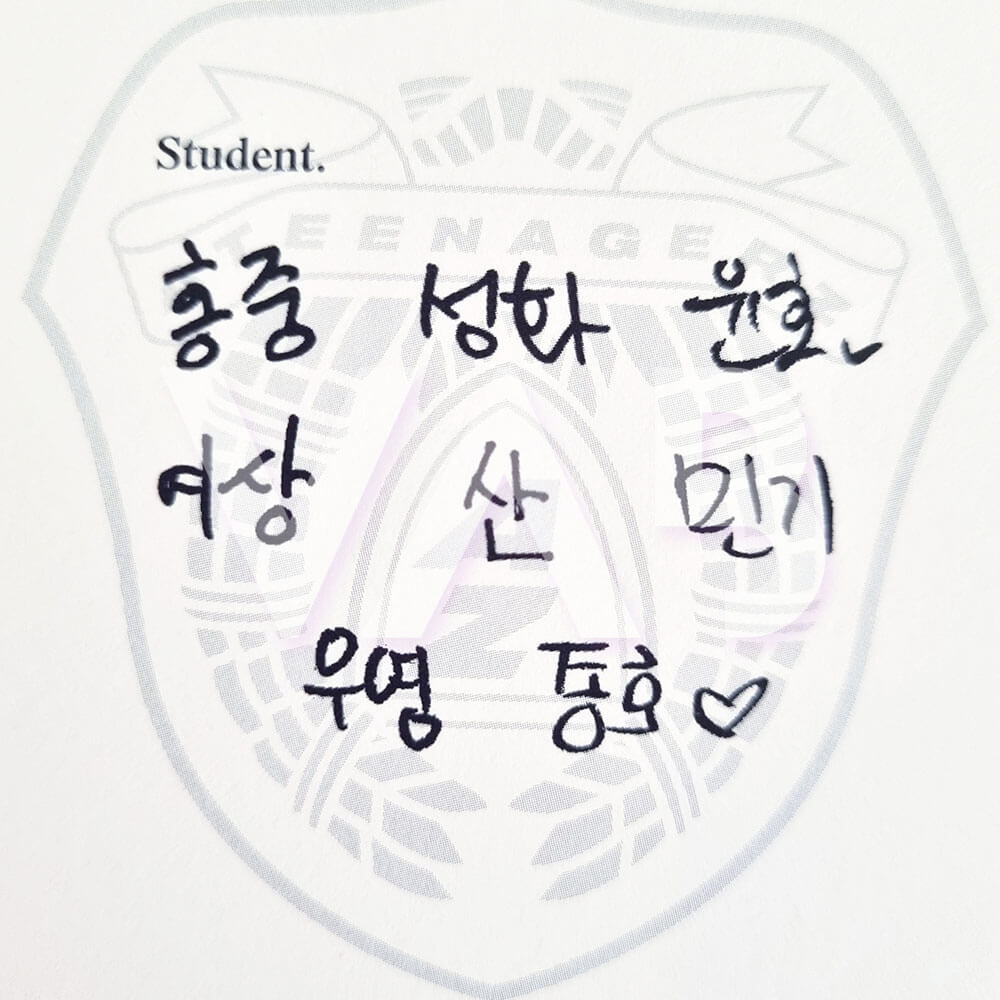 Student.
TEENAGER
홍중 성화 윤호
여상 산 민기
우영 종호 ♡
Z